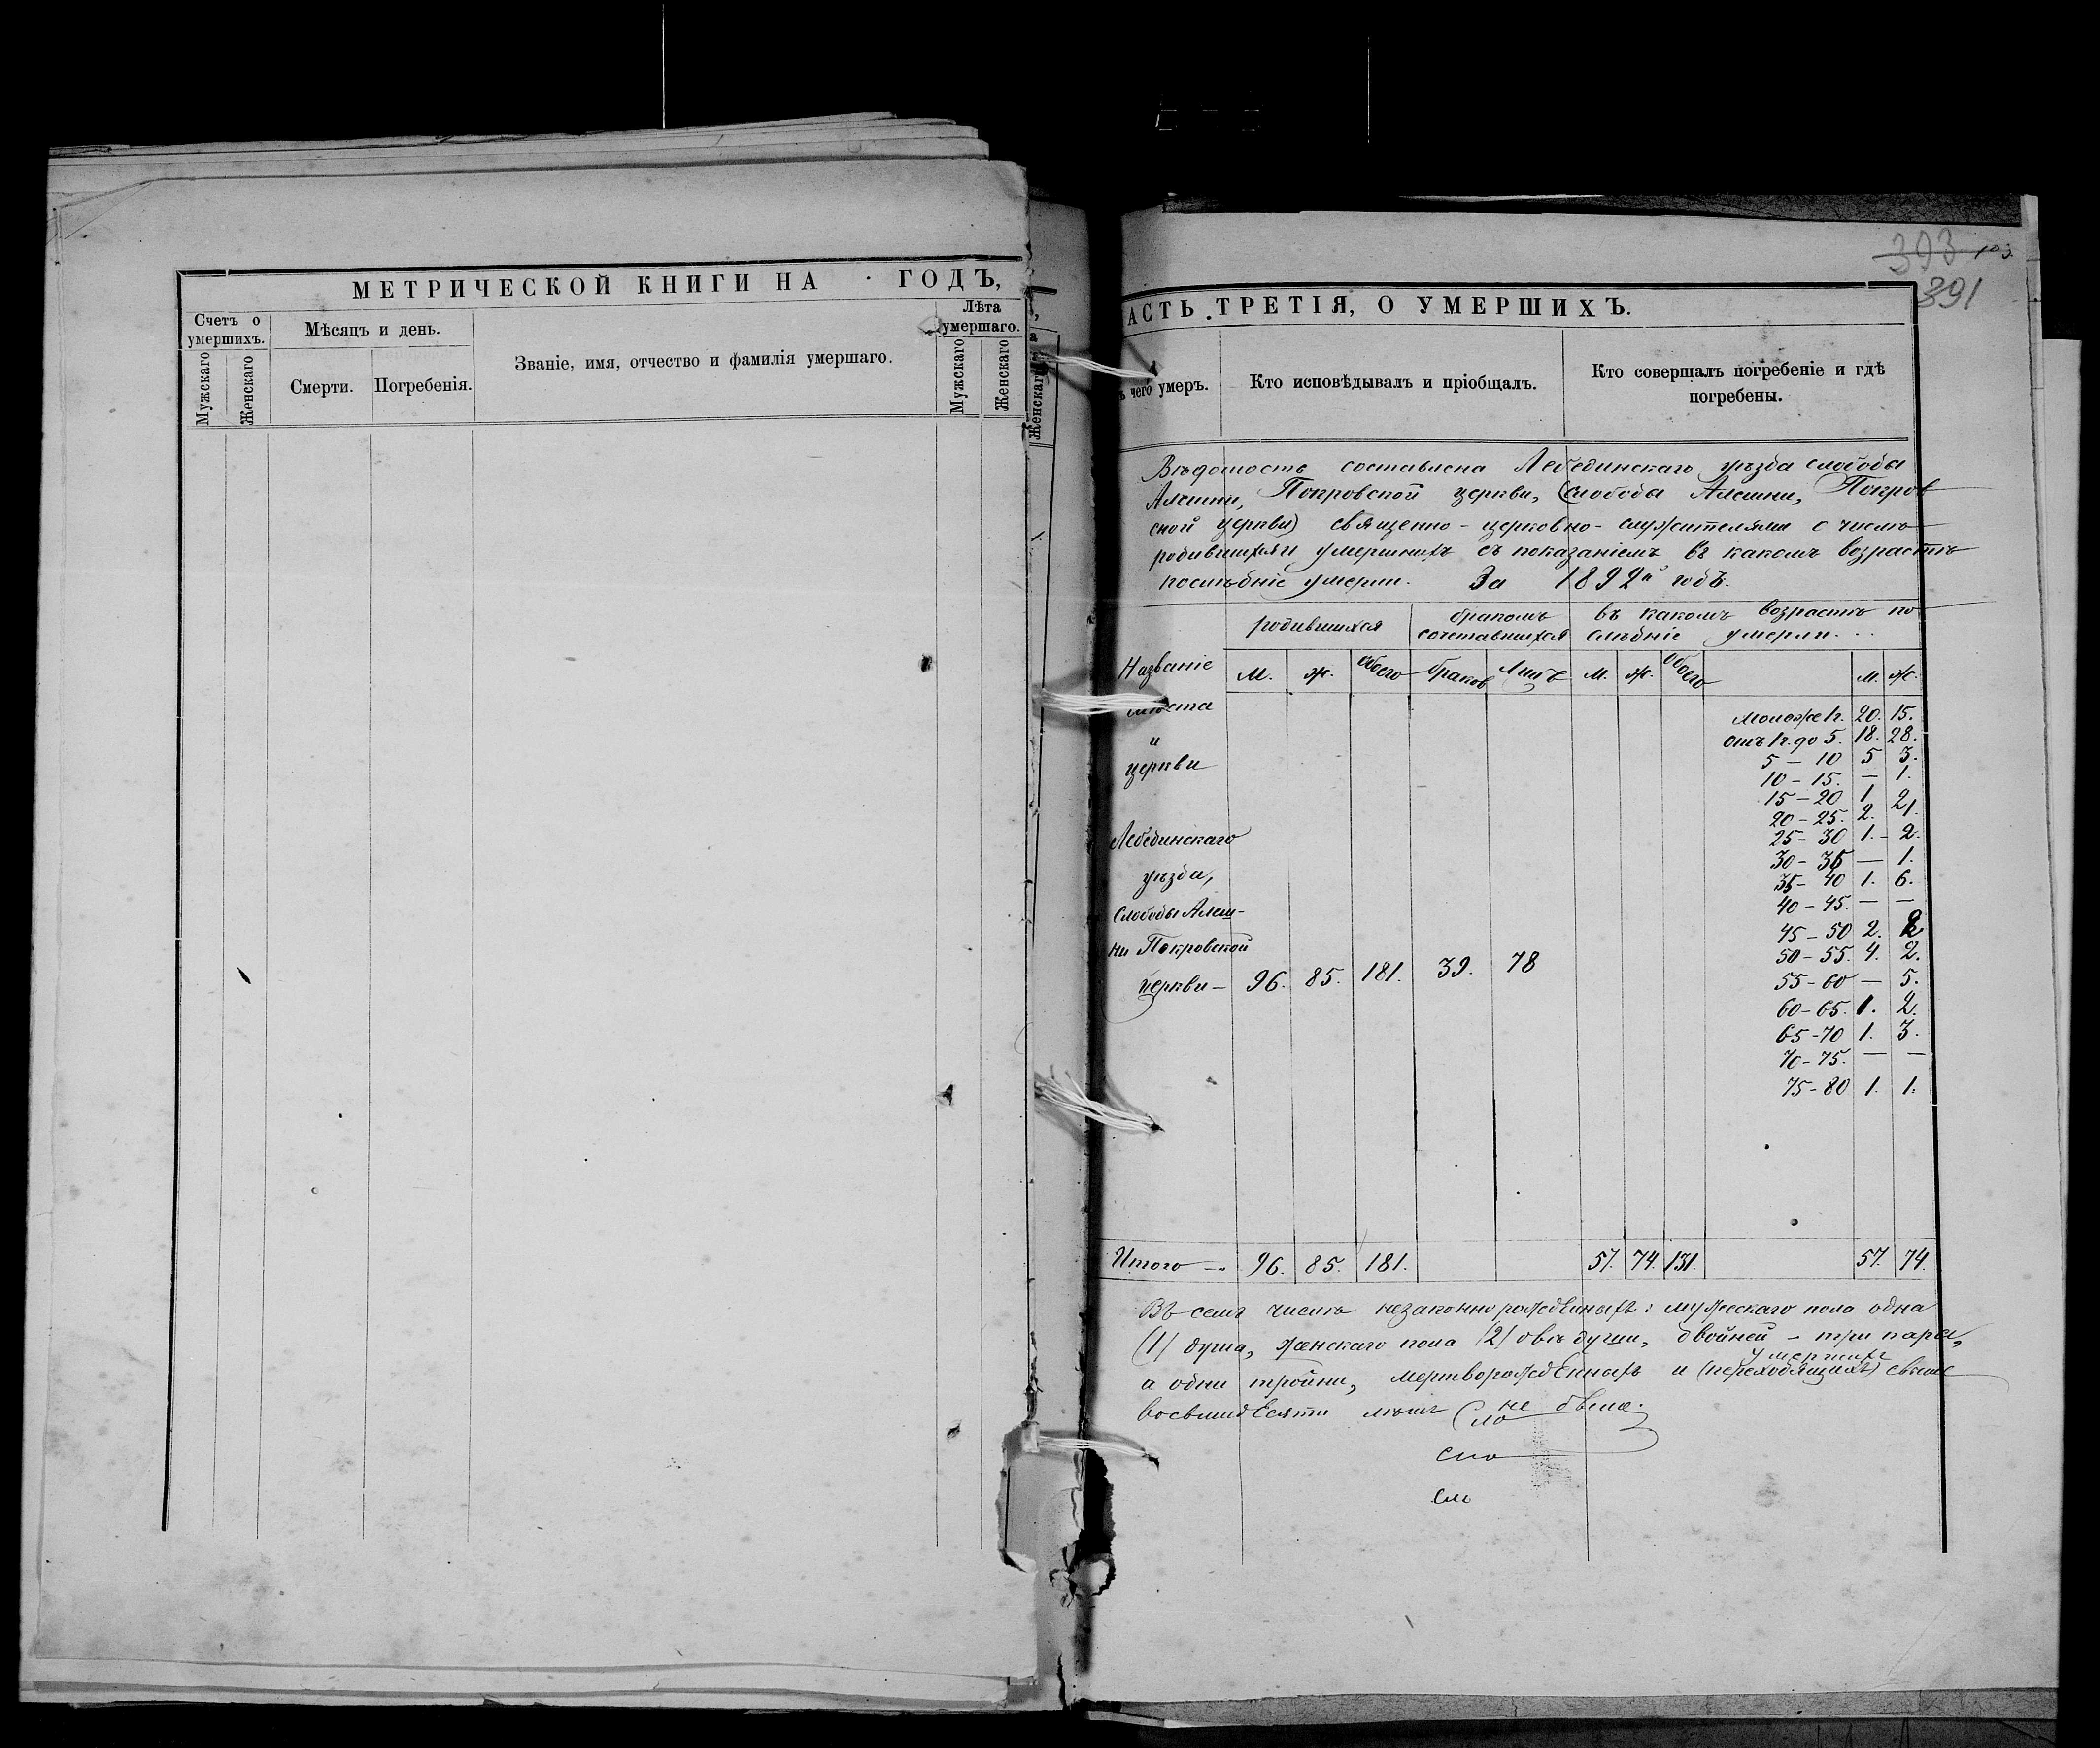 МЕТРИЧЕСКОЙ КНИГИ НА ГОДЪ,
Счетъ о умершихъ.
Мужскаго
Женскаго
Мѣсяцъ и день.
Смерти.
Погребенія.
Званіе, имя, отчество и фамилія умершаго.
Лѣта умершаго.
Мужскаго
Женскаго
Женскаго
393
103.
391
АСТЬ ТРЕТІЯ, О УМЕРШИХЪ.
чего умеръ.
Кто исповѣдывалъ и пріобщалъ.
Кто совершалъ погребеніе и гдѣ
погребены.
Вѣдомость составлена Лебединскаго уѣзда слободы
Алешни, Покровской церкви, (слободы Алешни, Покров
ской церкви) священно-церковно-служителями о числѣ
родившихся и умершихъ съ показаніемъ въ какомъ возрастѣ
послѣдніе умерли. За 1892й годъ.
родившихся
бракомъ
сочетавшихся
въ какомъ возрастѣ по
слѣдніе умерли...
Названіе
мѣста
и
церкви
М. Ж. Обоего браков Лицъ М. Ж. Обоего М. Ж.
моложе 1г. 20. 15.
отъ 1г. до 5. 18. 28.
5 – 10 5 3.
10 – 15. – 1.
15 – 20 1 2
20 – 25. 2. 1.
25 – 30 1. – 2.
30 – 35 — 1.
35 – 40 1. 6.
40 – 45. — —
45 – 50 2. 2
50 – 55. 4. 2.
55 – 60 — 5.
60 – 65. 1. 2.
65 – 70 1. 3.
70 – 75. — —
75 – 80 1. 1.
Лебединскаго
уѣзда,
Слободы Алеш-
ни Покровской
церкви – 96. 85. 181. 39. 78
Итого – 96. 85. 181. 57. 74. 131. 57. 74.
Въ семъ числѣ незаконнорожденныхъ: мужескаго пола одна
(1) душа, женскаго пола (2) двѣ души, двойней – три пары,
умершихъ
а одни тройни, мертворожденныхъ и (переходящихъ) свыше
восьмидесяти лѣтъ не было.
сло
сло